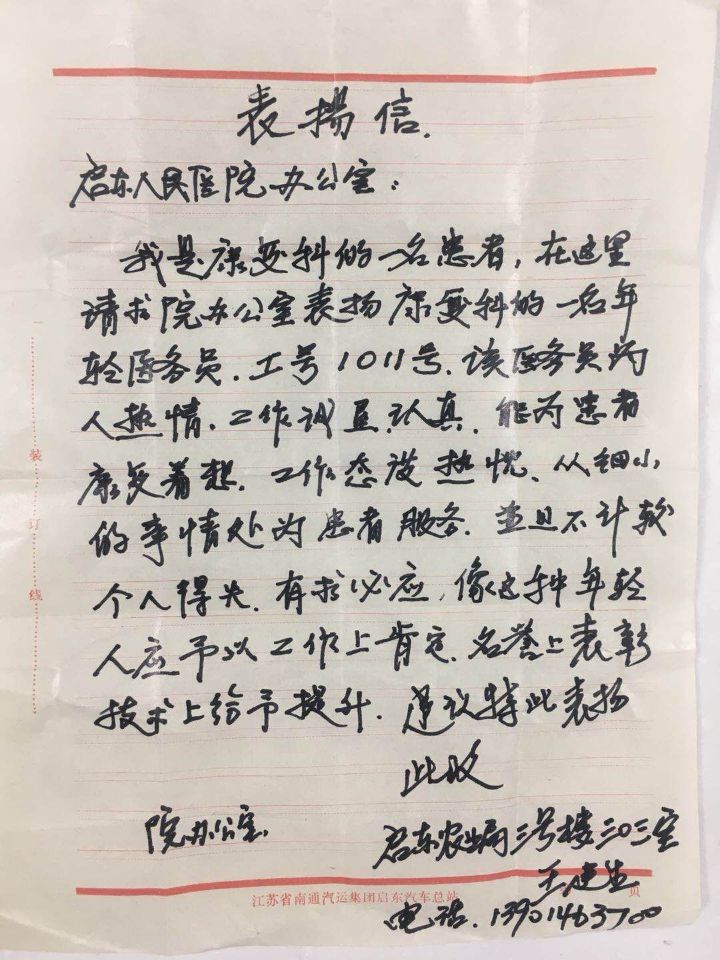 表揚信.
启东人民医院办公室:
我是康复科的一名患者,在这里
请求院办公室表扬康复科的一名年
轻医务员.工号1011号.该医务员为
人热情.工作诚恳.认真.能为患者
康复着想.工作态度热忱.从细小
的事情处为患者服务.并且不计较
个人得失.有求必应,像这种年轻
人应予以工作上肯定.名誉上表彰
技术上给予提升.建议特此表扬
此致
院办公室
启东农业局三号楼三〇三室
王建生
电话.13901463700
装订线
江苏省南通汽运集团启东汽车总站
页